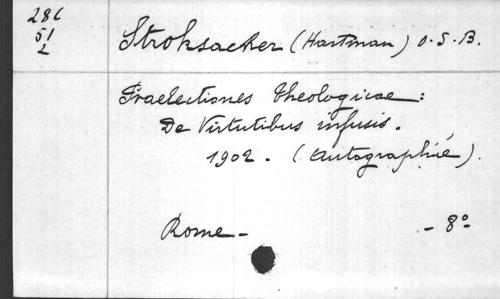 286
51
2
Strohsacker (Hartman) O.S.B.
Praelectiones theologicae :
De Virtutibus infusis.
1902. (autographié).
Rome - - 8°